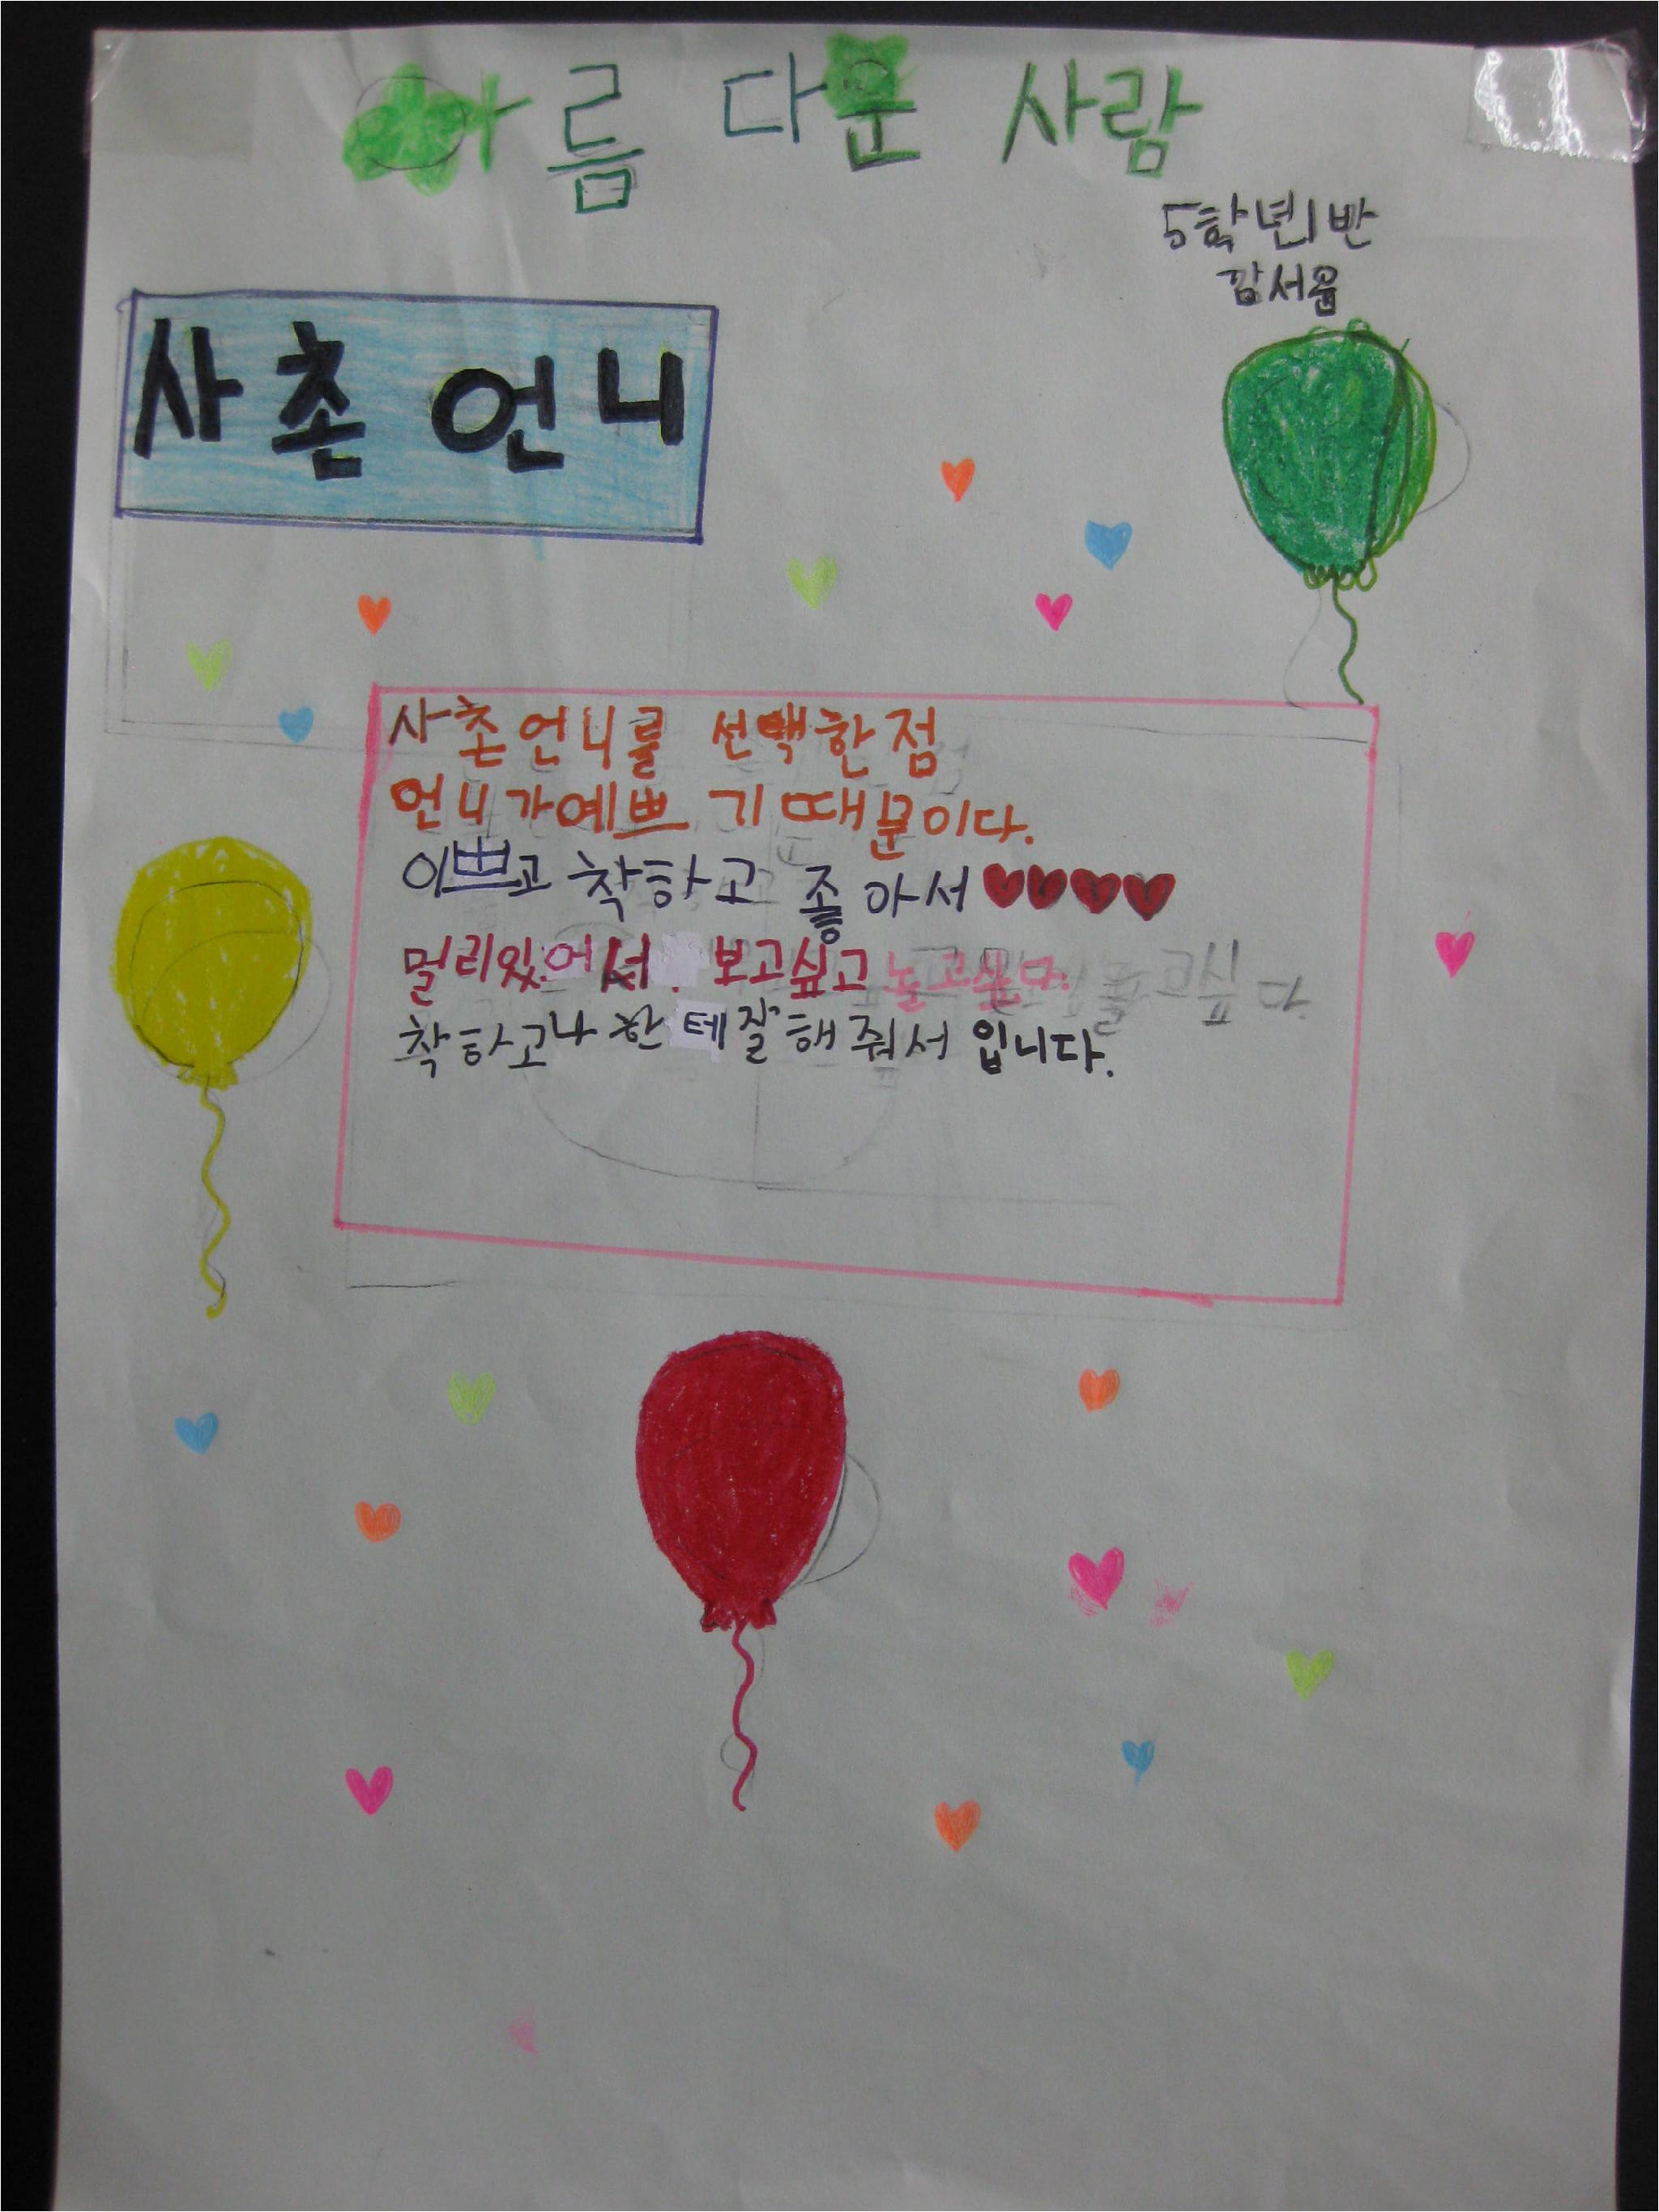 아름 다운 사람
5학년1반
사촌 언니
사촌언니를 선택한점
언니가예쁘기때문이다.
이쁘고 착하고 좋아서♥♥♥♥
멀리있어서. 보고싶고 놀고싶다.
착하고나한테잘해줘서 입니다.